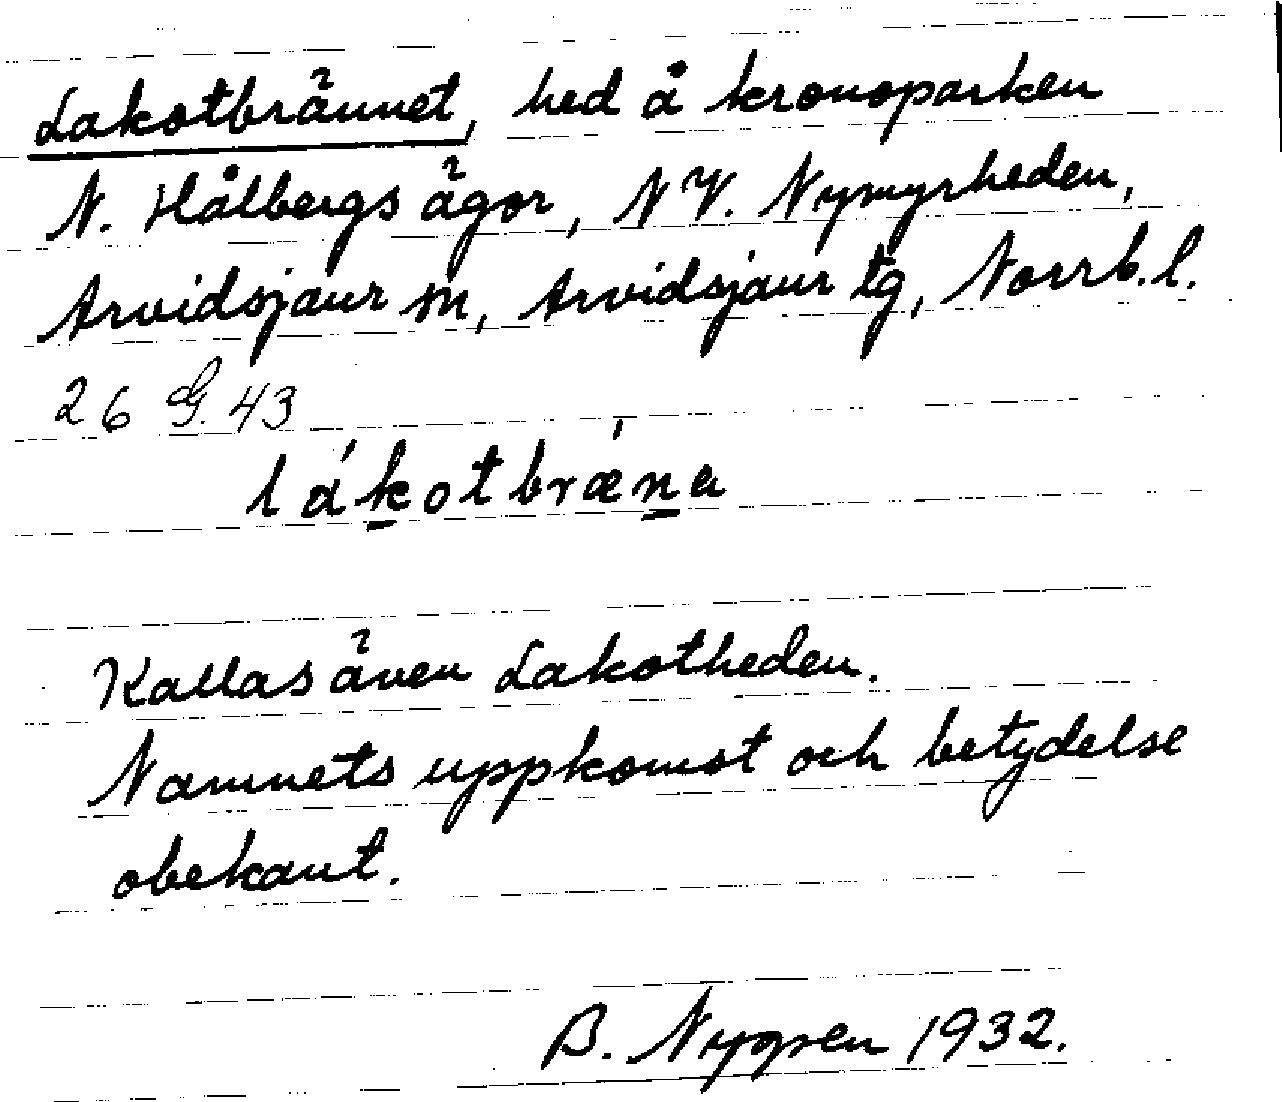 Lakotbrännet, hed å kronoparken
N. Hålbergs ägor, NV. Nymyrheden,
Arvidsjaur sn, Arvidsjaur tg, Norrb.l.
26 G. 43
lákotbræ̀na
Kallas även Lakotheden.
Namnets uppkomst och betydelse
obekant.
B. Nygren 1932.